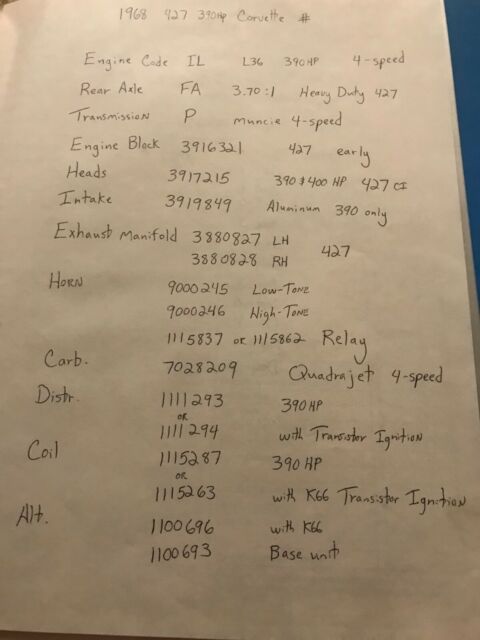 1968 427 390Hp Corvette #
Engine Code IL L36 390HP 4-speed
Rear Axle FA 3.70:1 Heavy Duty 427
Transmission P muncie 4-speed
Engine Block 3916321 427 early
Heads 3917215 390 & 400 HP 427 CI
Intake 3919849 Aluminum 390 only
Exhaust Manifold 3880827 LH
3880828 RH 427
Horn 9000245 Low-Tone
9000246 High-Tone
1115837 or 1115862 Relay
Carb. 7028209 Quadrajet 4-speed
Distr. 1111293 390HP
OR
1111294 with Transistor Ignition
Coil 1115287 390 HP
OR
1115263 with K66 Transistor Ignition
Alt. 1100696 with K66
1100693 Base unit